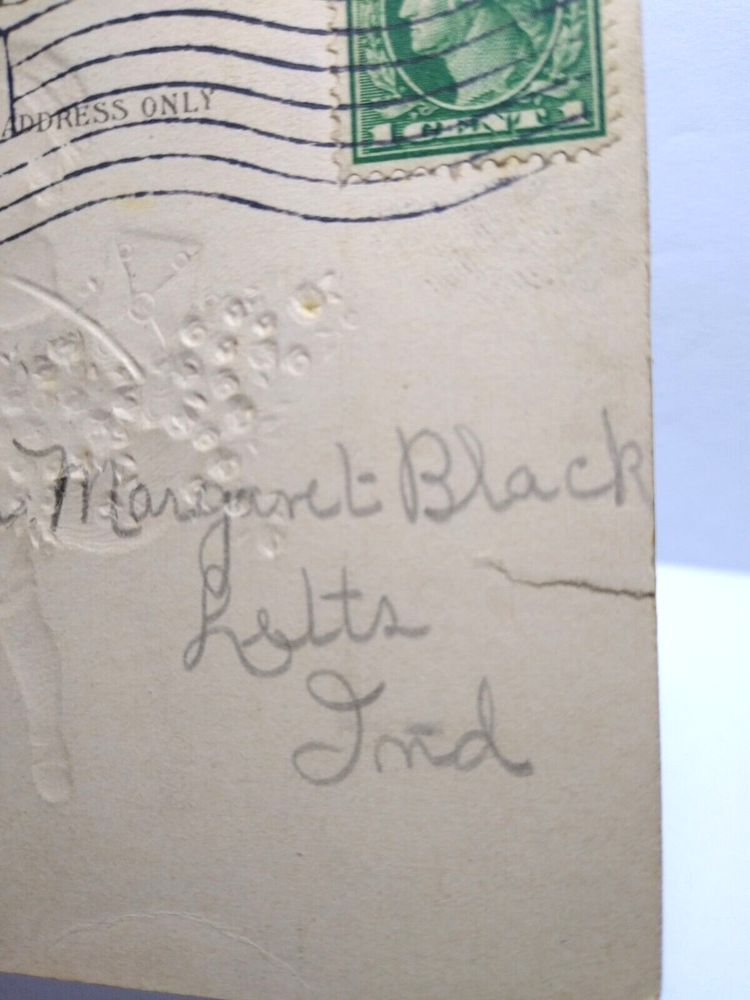 ADDRESS ONLY
1 CENT 1
Margaret Black
Letts
Ind